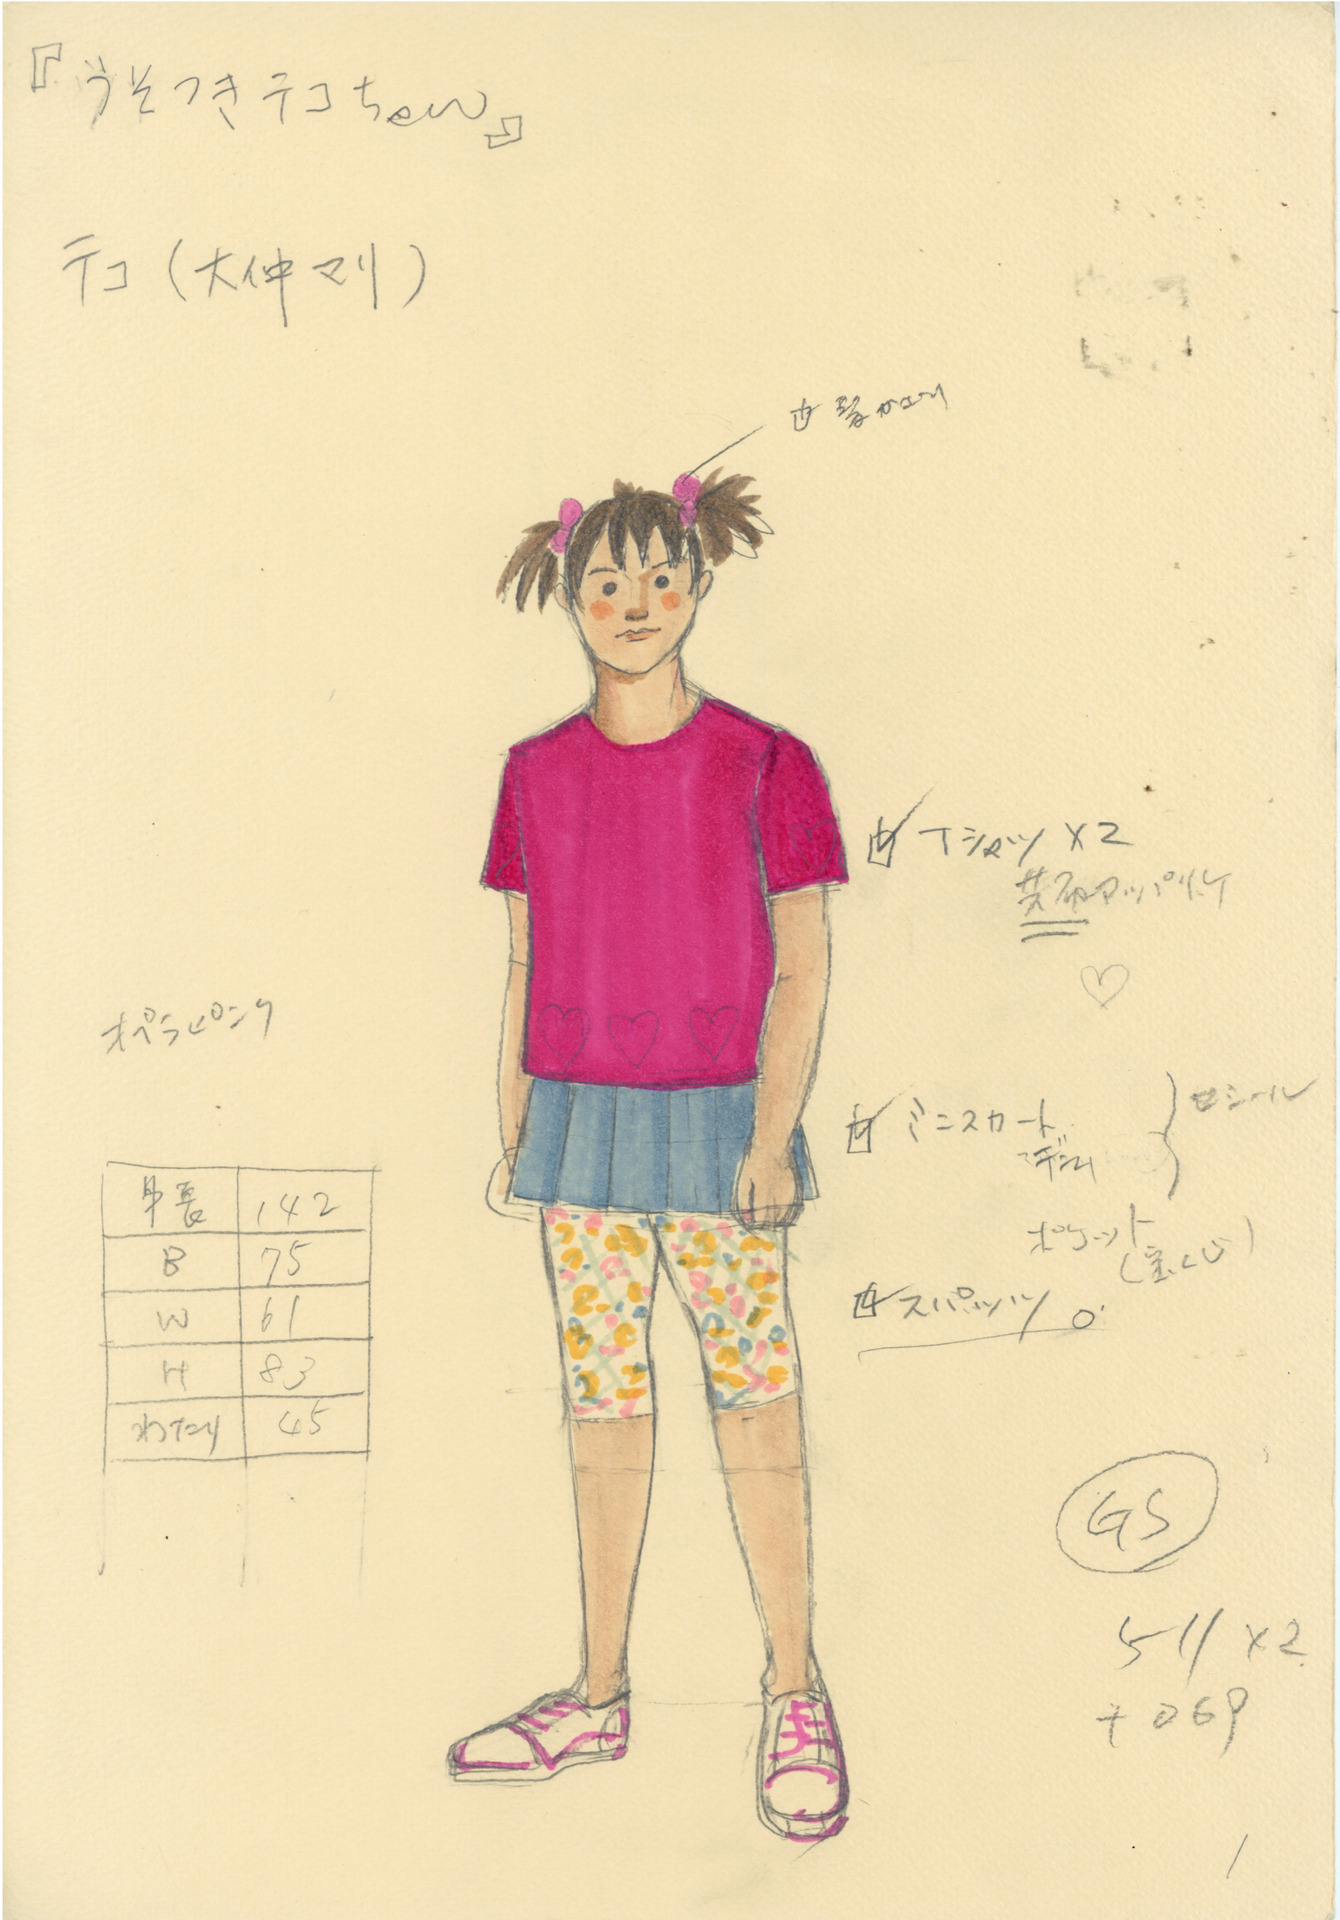 『うそつきテコちゃん』
テコ(大仲マリ)
Tシャツ X2
共布アップリケ
オペラピンク
ミニスカート
シール
ポケット
(宝くじ)
スパッツ
身長 142
B 75
W 61
H 83
わたり 45
GS
511 X2
+069